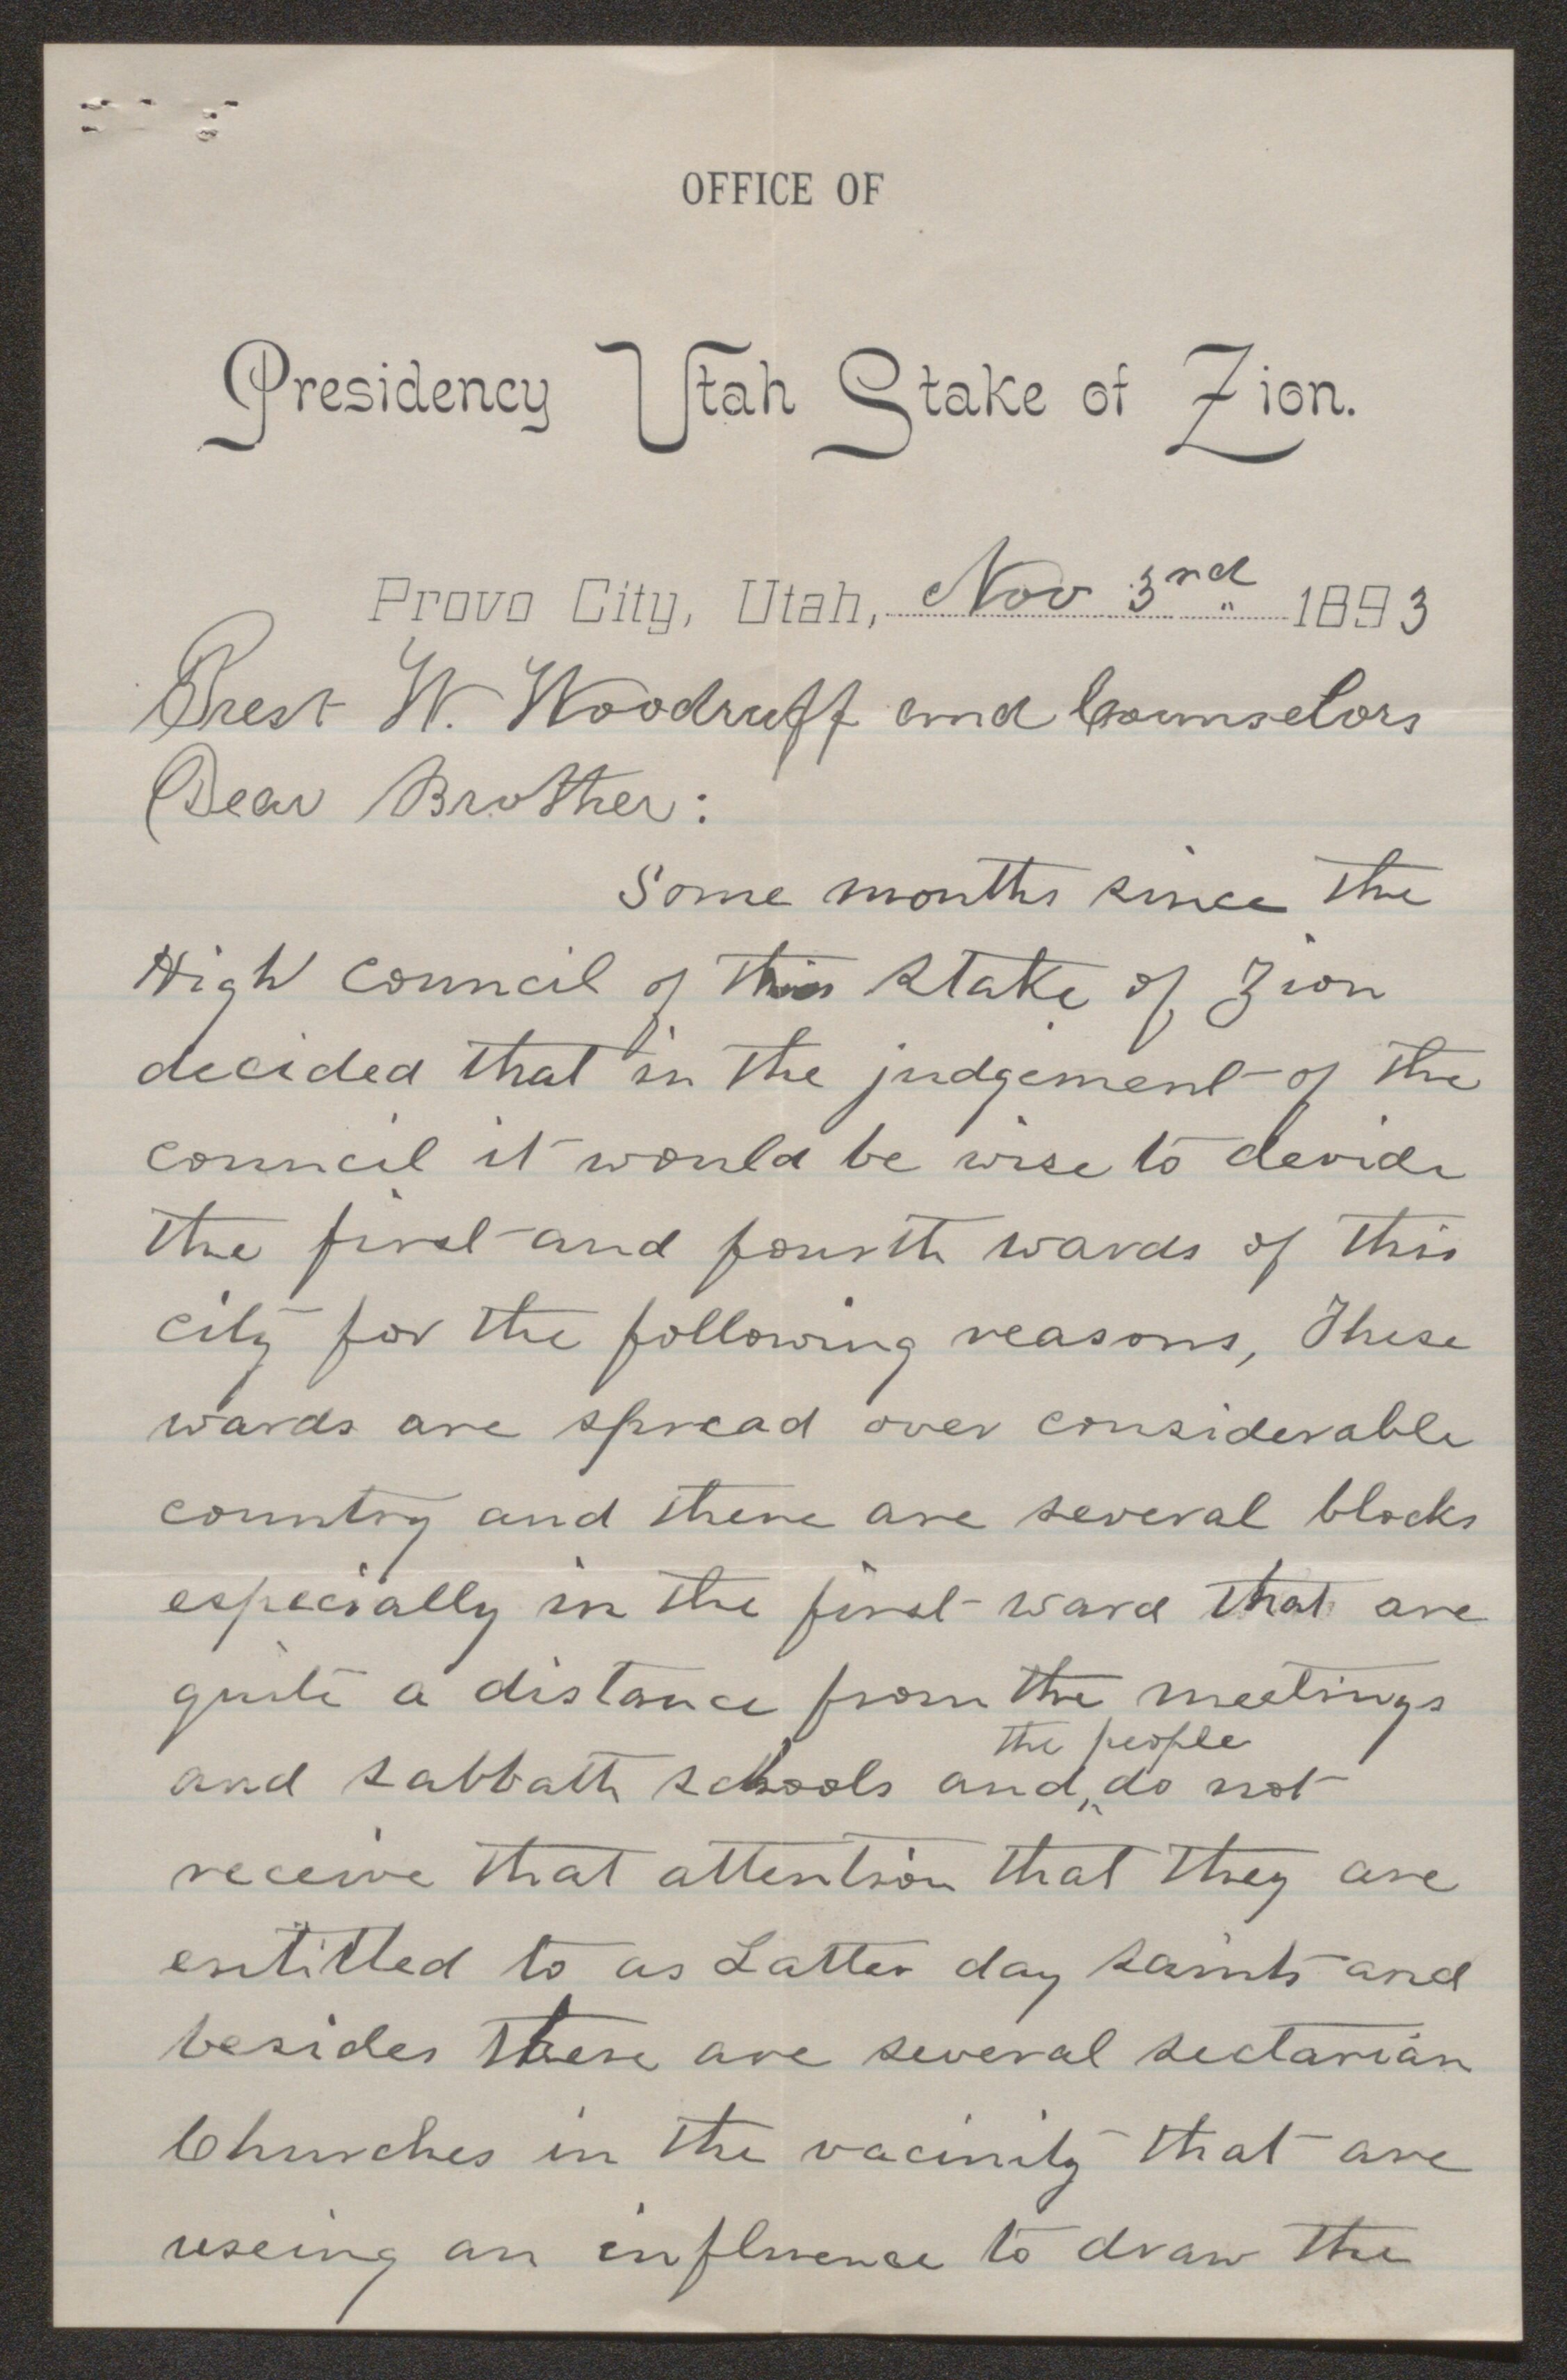 OFFICE OF
Presidency Utah Stake of Zion.
Provo City, Utah, Nov 3rd 1893
Prest W. Woodruff and Counselors
Dear Brother:
Some months since the
High Council of this Stake of Zion
decided that in the judgement of the
council it would be wise to devide
the first and fourth wards of this
city for the following reasons, These
wards are spread over considerable
country and there are several blocks
especially in the first ward that are
quite a distance from the meetings
the people
and sabbath schools and do not
receive that attention that they are
entitled to as Latter day saints and
besides there are several sectarian
Churches in the vacinity that are
useing an influence to draw the